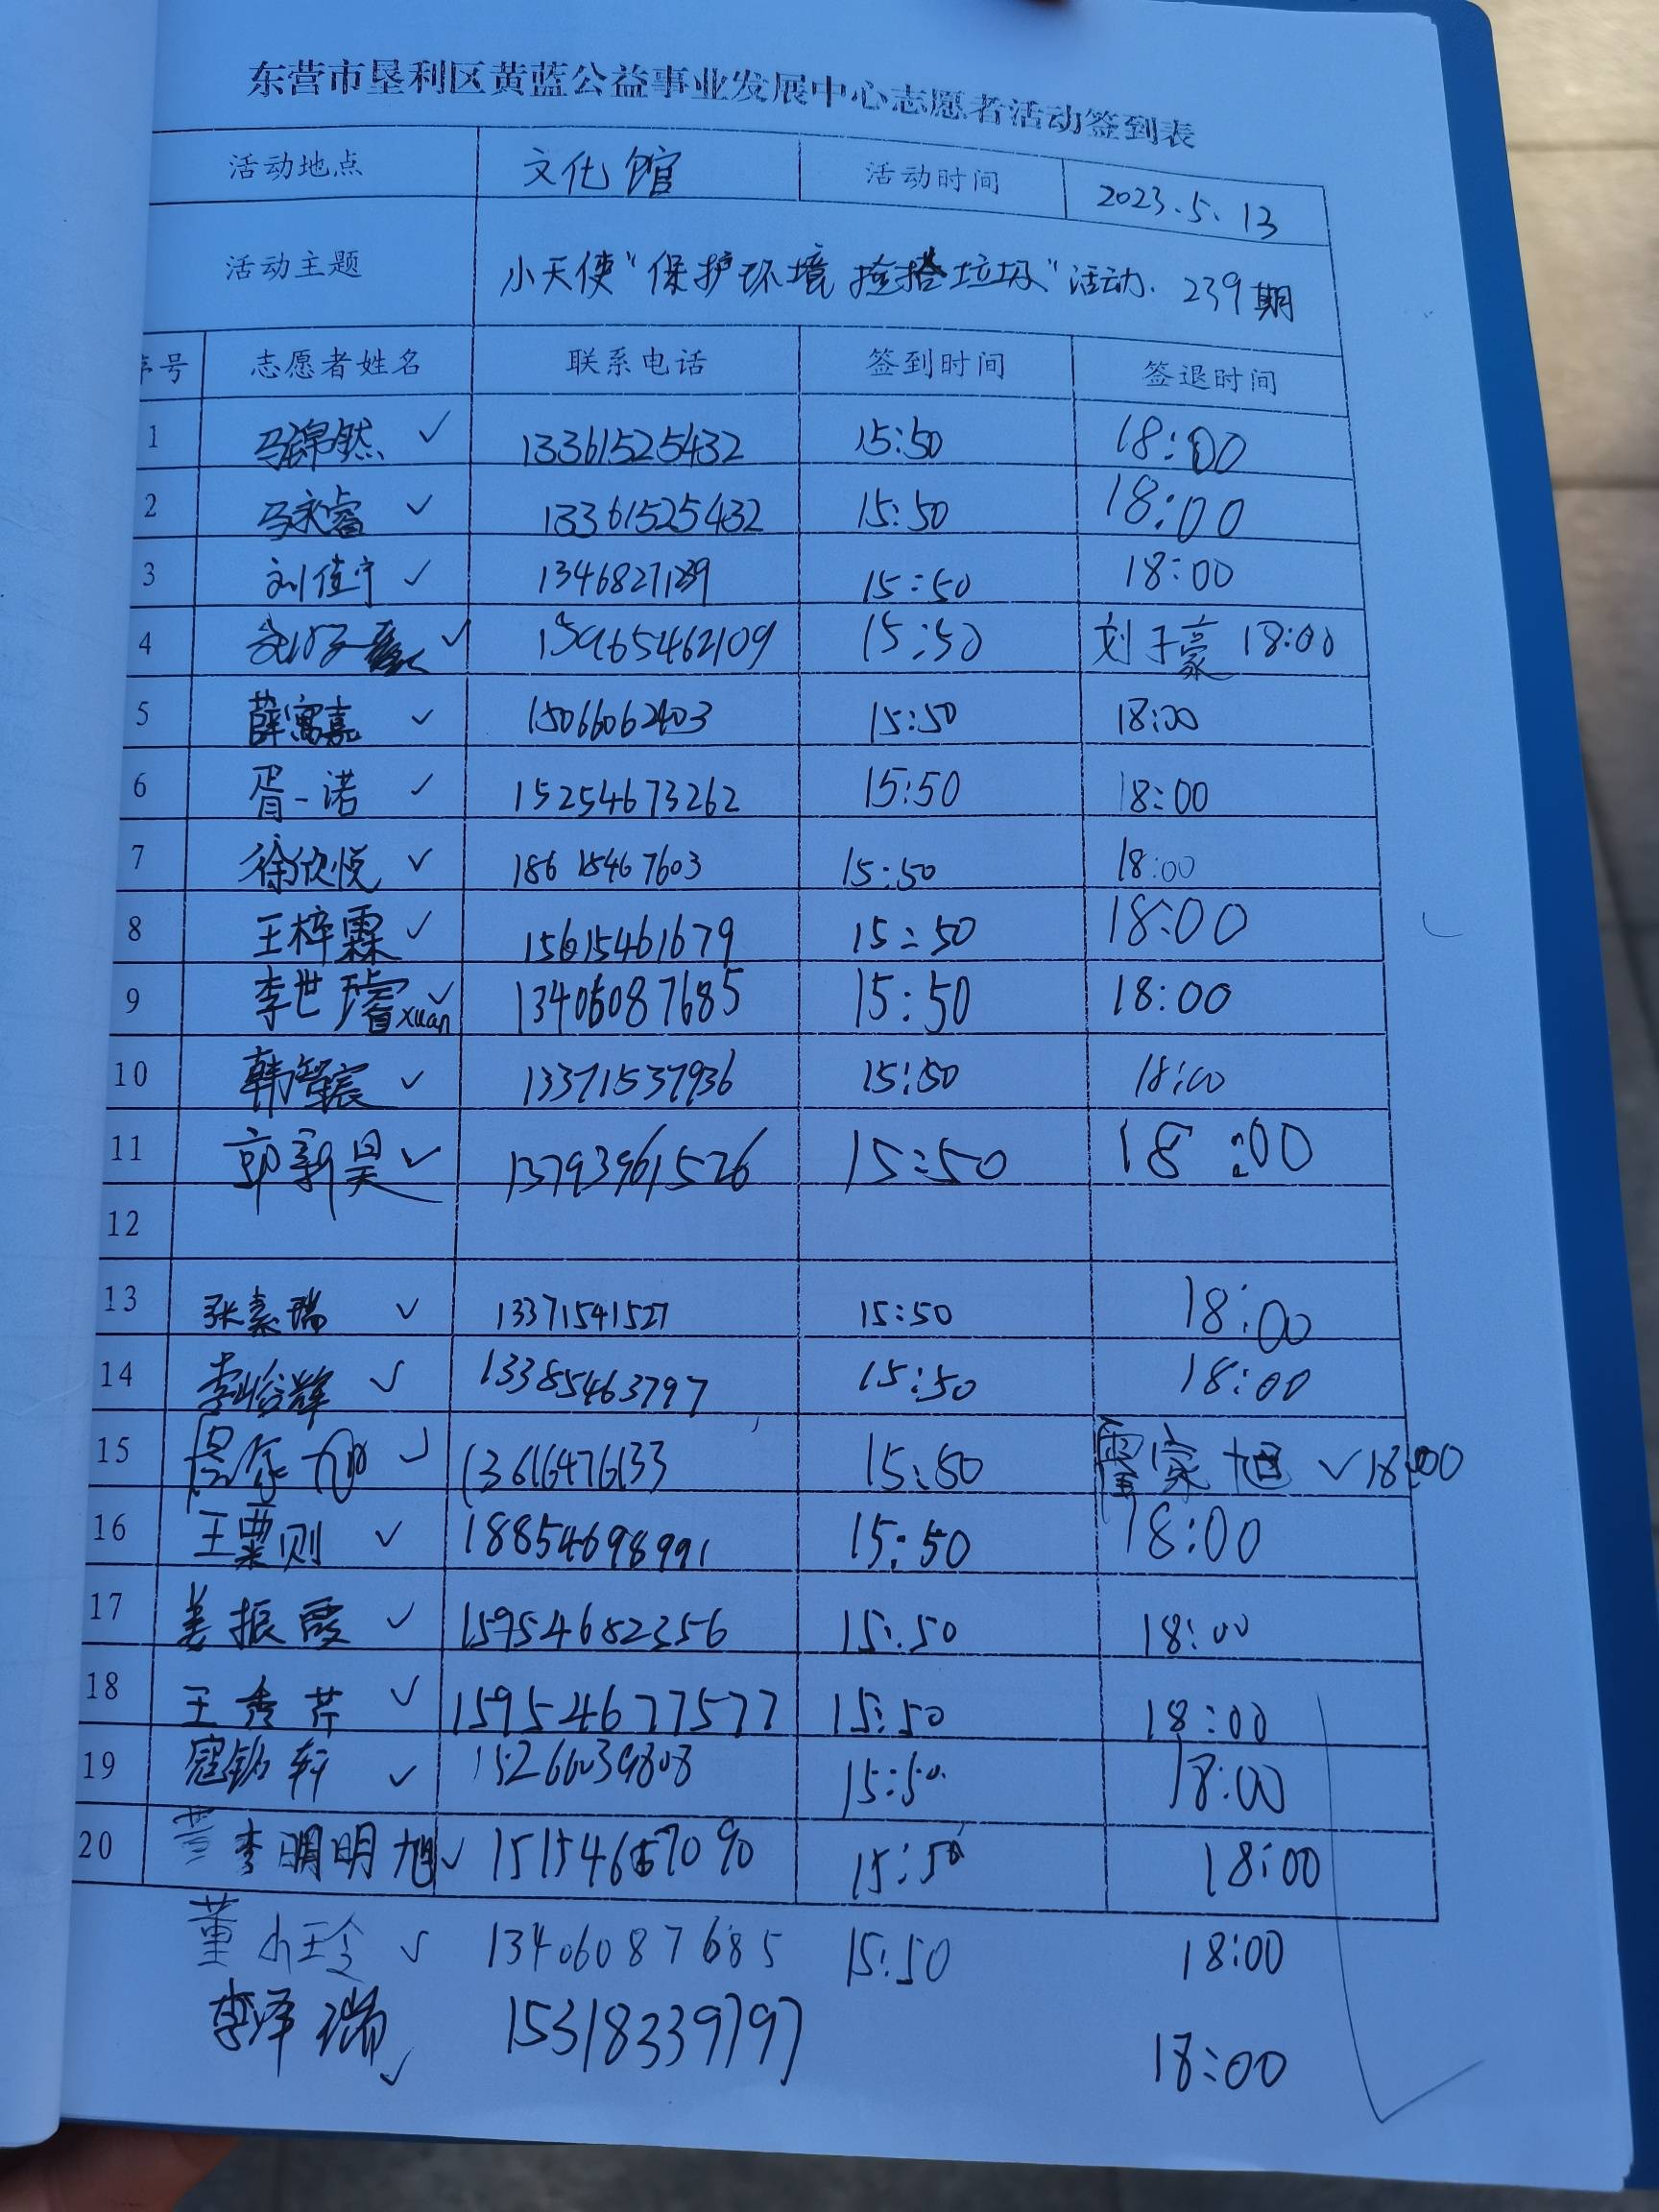 东营市垦利区黄蓝公益事业发展中心志愿者活动签到表
活动地点 文化馆 活动时间 2023.5.13
活动主题 小天使“保护环境 捡拾垃圾”活动. 239期
序号 志愿者姓名 联系电话 签到时间 签退时间
1 马锦然 ✓ 13361525432 15:50 18:00
2 马永睿 ✓ 13361525432 15:50 18:00
3 刘佳宁 ✓ 15:50 18:00
4 ✓ 15965462109 15:50 刘子豪 18:00
5 薛寓嘉 ✓ 15066062403 15:50 18:00
6 胥一诺 ✓ 15254673262 15:50 18:00
7 徐欣悦 ✓ 18615467603 15:50 18:00
8 王梓霖 ✓ 15615461679 15:50 18:00
9 李世璿 xuan ✓ 13406087685 15:50 18:00
10 韩智宸 ✓ 13371537936 15:50 18:00
11 郭新昊 ✓ 13793961526 15:50 18:00
12
13 张嘉瑞 ✓ 13371541527 15:50 18:00
14 李怡辉 ✓ 13385463797 15:50 18:00
15 ✓ 13616476133 15:50 家旭 ✓ 18:00
16 王粟则 ✓ 18854698991 15:50 18:00
17 姜振霞 ✓ 15954682356 15:50 18:00
18 王秀芹 ✓ 15954677577 15:50 18:00
19 寇铭轩 ✓ 15266039808 15:50 18:00
20 李明旭 ✓ 15:50 18:00
董小玲 ✓ 13406087685 15:50 18:00
李泽瑞 ✓ 15318339797 18:00